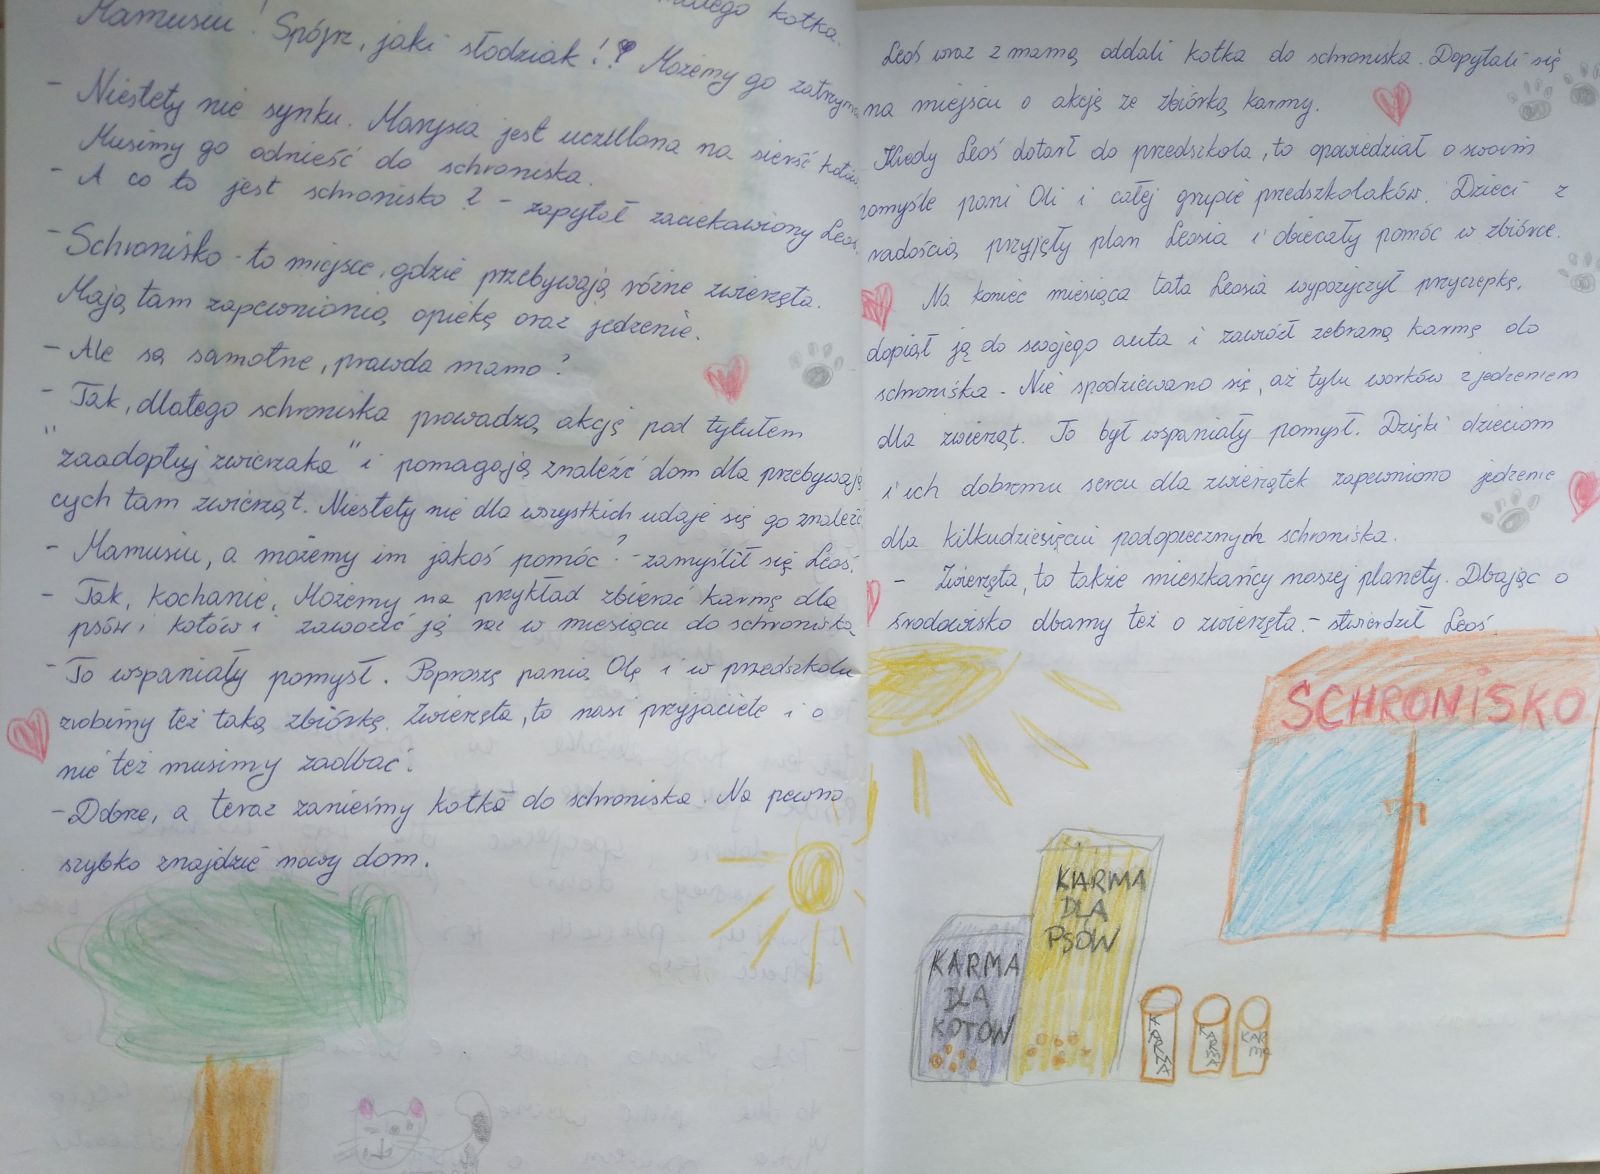 małego kotka.
Mamusiu! Spójrz, jaki słodziak!? Możemy go
- Niestety nie synku. Marysia jest uczulona na sierść kotów.
Musimy go odnieść do schroniska.
- A co to jest schronisko? - zapytał zaciekawiony Leoś.
- Schronisko - to miejsce, gdzie przebywają różne zwierzęta.
Mają tam zapewnioną opiekę oraz jedzenie.
- Ale są samotne, prawda mamo?
- Tak, dlatego schroniska prowadzą akcję pod tytułem
"zaadoptuj zwierzaka" i pomagają znaleźć dom dla przebywają
cych tam zwierząt. Niestety nie dla wszystkich udaje się go znaleźć
- Mamusiu, a możemy im jakoś pomóc? - zamyślił się Leoś.
- Tak, kochanie. Możemy na przykład zbierać karmę dla
psów i kotów i zawozić ją raz w miesiącu do schroniska
- To wspaniały pomysł. Poproszę panią Olę i w przedszkolu
zrobimy też taką zbiórkę. Zwierzęta, to nasi przyjaciele i o
nie też musimy zadbać.
- Dobrze, a teraz zanieśmy kotka do schroniska. Na pewno
szybko znajdzie nowy dom.
Leoś wraz z mamą oddali kotka do schroniska. Dopytali się
na miejscu o akcję ze zbiórką karmy.
Kiedy Leoś dotarł do przedszkola, to opowiedział o swoim
pomyśle pani Oli i całej grupie przedszkolaków. Dzieci z
radością przyjęły plan Leosia i obiecały pomóc w zbiórce.
Na koniec miesiąca tata Leosia wypożyczył przyczepkę,
dopiął ją do swojego auta i zawiózł zebraną karmę do
schroniska. Nie spodziewano się, aż tylu worków z jedzeniem
dla zwierząt. To był wspaniały pomysł. Dzięki dzieciom
i ich dobremu sercu dla zwierzątek zapewniono jedzenie
dla kilkudziesięciu podopiecznych schroniska.
- Zwierzęta, to także mieszkańcy naszej planety. Dbając o
środowisko dbamy też o zwierzęta. - stwierdził Leoś.
SCHRONISKO
KARMA
DLA
PSÓW
KARMA
DLA
KOTÓW
KARMA
KARMA
KAR
MA